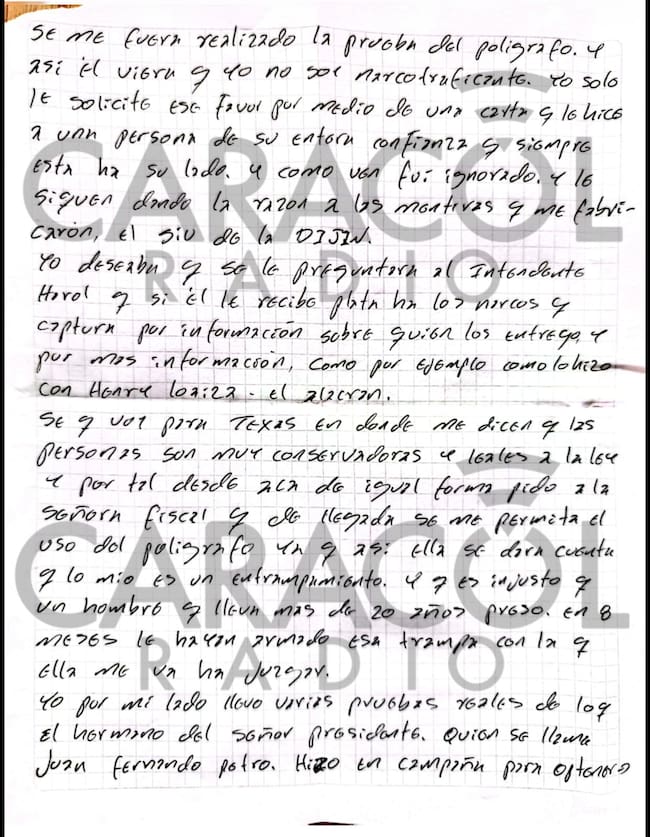 se me fuera realizado la prueba del poligrafo. y
asi él viera q yo no soy narcotraficante. Yo solo
le solicite ese favor por medio de una carta q le hice
a una persona de su entera confianza q siempre
esta ha su lado. y como ven fui ignorado. y le
siguen dando la razon a las mentiras q me fabri-
caron, el siu de la DIJIN.
Yo deseaba q se le preguntara al Intendente
Harol q si él le recibe plata ha los narcos q
captura por información sobre quien los entrego, y
por mas información, como por ejemplo como lo hizo
con Henry loaiza - el alacran.
Se q voy para Texas en donde me dicen q las
personas son muy conservadoras y leales a la ley
y por tal desde aca de igual forma pido a la
señora fiscal q de llegada se me permita el
uso del poligrafo ya q asi ella se dara cuenta
q lo mio es un entrampamiento. y q es injusto q
un hombre q lleva mas de 20 años preso. en 8
meses le hayan armado esa trampa con la q
ella me va ha juzgar.
Yo por mi lado llevo varias pruebas reales de lo q
el hermano del señor presidente. Quien se llama
Juan fernando petro. Hizo en campaña para obtener
CARACOL
RADIO
CARACOL
RADIO